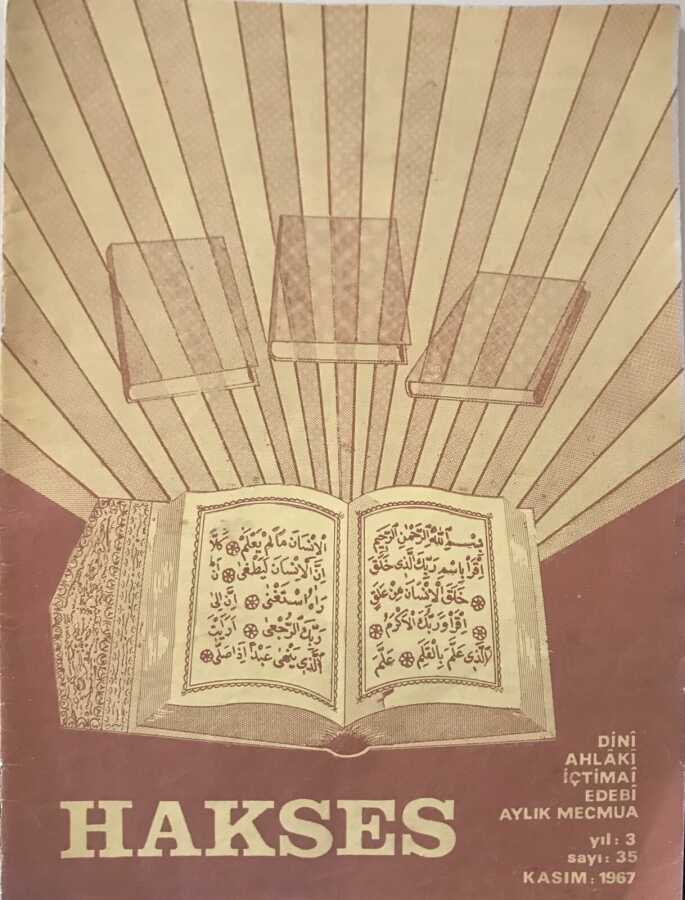 بِسْمِ اللهِ الرَّحْمٰنِ الرَّحِيمِ
اِقْرَأْ بِاسْمِ رَبِّكَ الَّذِى خَلَقَ
خَلَقَ الْاِنْسَانَ مِنْ عَلَقٍ
اِقْرَأْ وَرَبُّكَ الْاَكْرَمُ
اَلَّذِى عَلَّمَ بِالْقَلَمِ عَلَّمَ
الْاِنْسَانَ مَا لَمْ يَعْلَمْ كَلَّا
اِنَّ الْاِنْسَانَ لَيَطْغٰى اَنْ
رَاٰهُ اسْتَغْنٰى اِنَّ اِلٰى
رَبِّكَ الرُّجْعٰى اَرَاَيْتَ
الَّذِى يَنْهٰى عَبْدًا اِذَا صَلّٰى
DİNÎ
AHLÂKÎ
İÇTİMAÎ
EDEBÎ
AYLIK MECMUA
HAKSES
yıl: 3
sayı: 35
KASIM: 1967